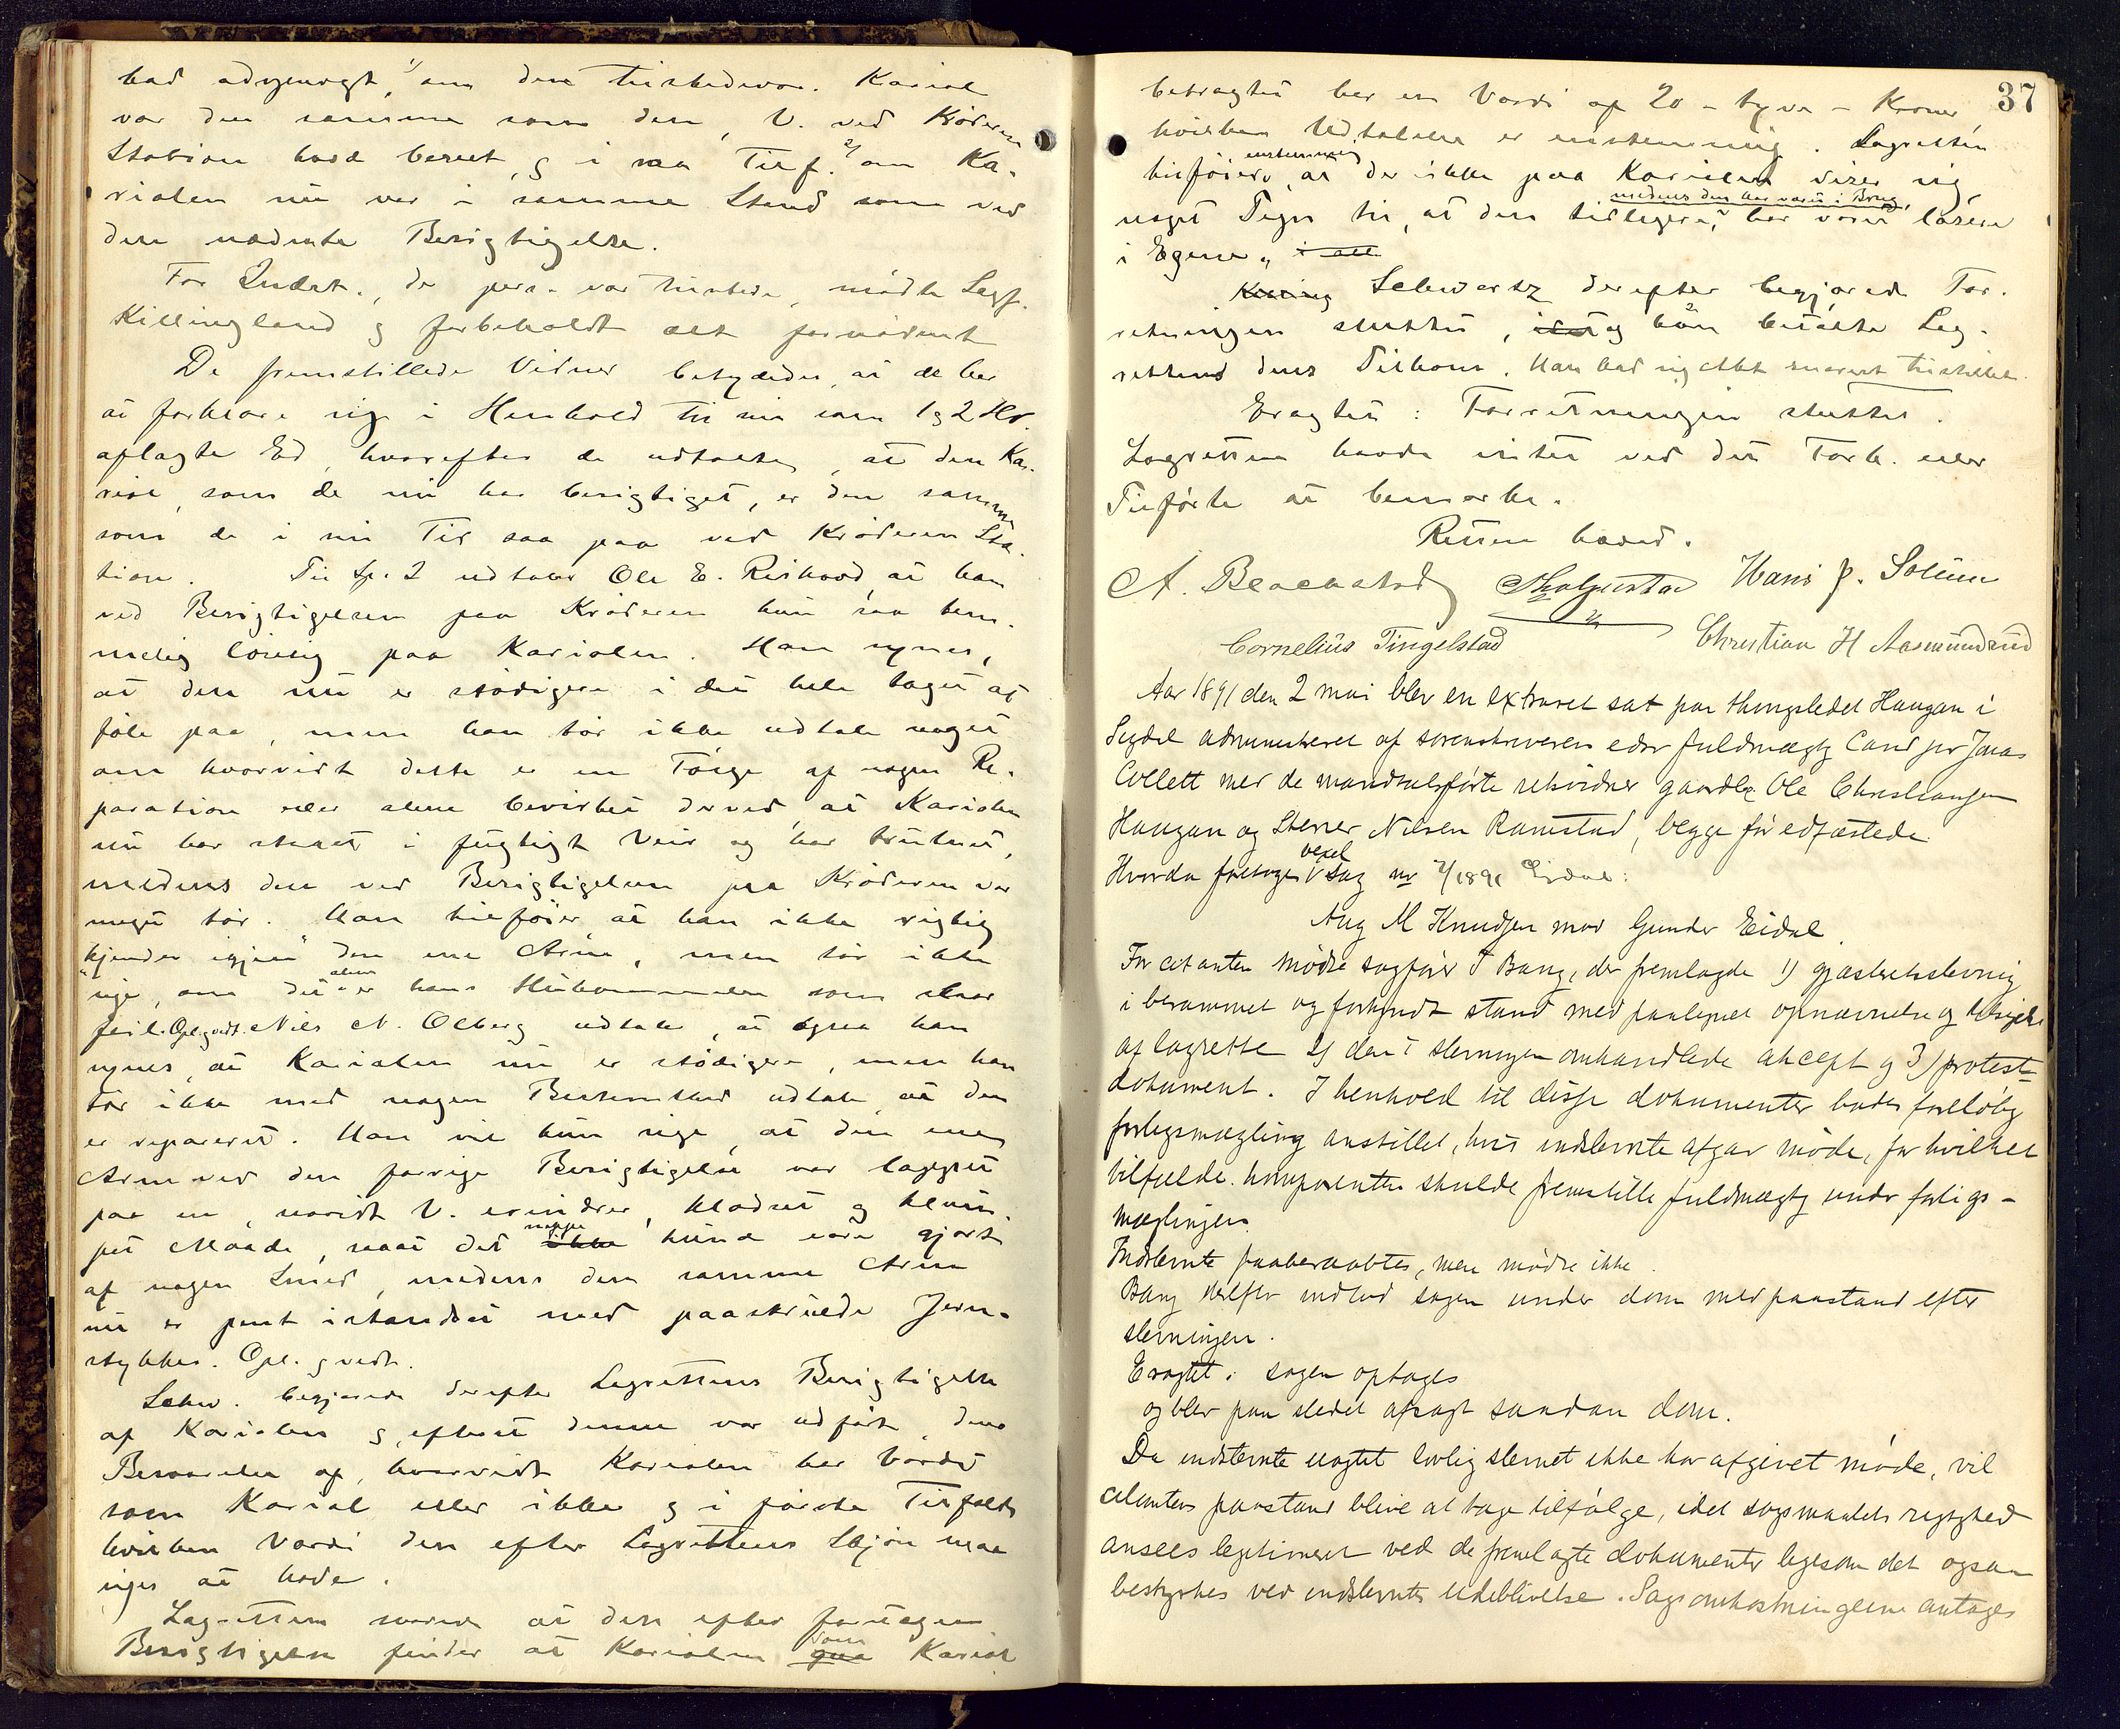 bad udspurgt, 1/ om den tilstedevær. Kariol
var den samme som den, V. ved Krøderen
Station havde beseet, og i saa Tilf. 2/ om Ka-
riolen nu var i samme Stand som ved
den nævnte Besigtigelse.
For Indst., der pers. var tilstede, mødte Sagf.
Killingland og forbeholdt alt fornødent
De fremstillede Vidner betydedes, at de har
at forklare sig i Henhold til sin som 1 og 2 Hv.
aflagte Ed, hvorefter de udtalte, at den Ka-
riol, som de nu har besigtiget, er den samme
som de i sin Tid saa paa ved Krøderen Sta-
tion. Til Sp. 2 udtaler Ole E. Rishovd, at han
ved Besigtigelsen paa Krøderen kun saa tem-
melig løselig paa Kariolen. Han synes,
at den nu er stødigere i det hele taget at
føle paa, men han tør ikke udtale noget
om hvorvidt dette er en Følge af nogen Re-
paration eller alene bevirket derved, at Kariolen
nu har staaet i fugtigt Veir og har trutnet,
medens den ved Besigtigelsen paa Krøderen var
meget tør. Han tilføier at han ikke rigtig
"kjender igjen" den ene Arm, men tør ikke
sige, om det alene er hans Hukommelse som slaar
feil. Opl. vedt. Nils N. Olberg udtaler, at ogsaa han
synes, at Kariolen nu er stødigere, men han
tør ikke med nogen Bestemthed udtale, at den
er repareret. Han vil kun sige, at den ene
Arm ved den forrige Besigtigelse var lappet
paa en, saavidt V. erindrer, kladset og klum-
pet Maade, saa at det ikke neppe kunde være gjort
af nogen Smed, medens den samme Arm
nu er pent istandsat med paaskruede Jern-
stykker. Opl. g vedt.
Schw. begjærede derefter Lagrettens Besigtigelse
af Kariolen og, efterat denne var udført, dens
Besvarelse af, hvorvidt Kariolen har Værdi
som Kariol eller ikke og i første Tilfælde
hvilken Værdi den efter Lagrettens Skjøn maa
siges at have.
Lagretten svarer at den efter foretagen
Besigtigelse finder at Kariolen qua som Kariol
37
betragtet har en Værdi af 20 - tyve - Kroner,
hvilken Udtalelse er enstemmig. Lagretten
tilføier, enstemmig at der ikke paa Kariolen viser sig
noget Tegn til, at den tidligere, medens den har været i Brug, har været løsere
i Egene, i all
Killing Schwartz derefter begjærede For-
retningen sluttet, idet og han betalte Lag-
rettens dens Tilkom. Han bad sig Akt snarest tilstillet.
Eragtet: Forretningen sluttet.
Lagretten havde intet ved det Forh. eller
Tilførte at bemærke.
Retten hævet.
A. Blackstad Hans P. Solum
Cornelius Tingelstad Christian H Aasmundrud
Aar 1891 den 2 mai blev en extraret sat paa thingstedet Haugan i
Sigdal administreret af sorenskriveren edsv fuldmægtig Cand jur Jonas
Collett med de mandtalsførte retsvidner gaardbr Ole Christiansen
Haugan og Stener Nilsen Ramstad, begge før edfæstede.
Hvorda foretoges vexel sag nr 2/1891 Eidal:
Aug M Knudsen mod Gunder Eidal.
For citanten mødte sagfører J Bang, der fremlagde 1) gjæsteretsstevning
i berammet og forkyndt stand med paategnet opnævnelse og tilsigelse
af lagrette 2) den i stevningen omhandlede akcept og 3) protest-
dokument. I henhold til disse dokumenter bades foreløbig
forligsmægling anstillet, hvis indstevnte afgav møde, for hvilket
tilfælde komparenten skulde fremstille fuldmægtig under forligs-
mæglingen.
Indstevnte paaberaabtes, men mødte ikke.
Bang derefter indlod sagen under dom med paastand efter
stevningen.
Eragtet: sagen optages
og blev paa stedet afsagt saadan dom.
Da indstevnte uagtet lovlig stevnet ikke har afgivet møde, vil
citantens paastand blive at tage tilfølge, idet søgsmaalets rigtighed
ansees legitimeret ved de fremlagte dokumenter ligesom det ogsaa
bestyrkes ved indstevntes udeblivelse. Sagsomkostningerne antages